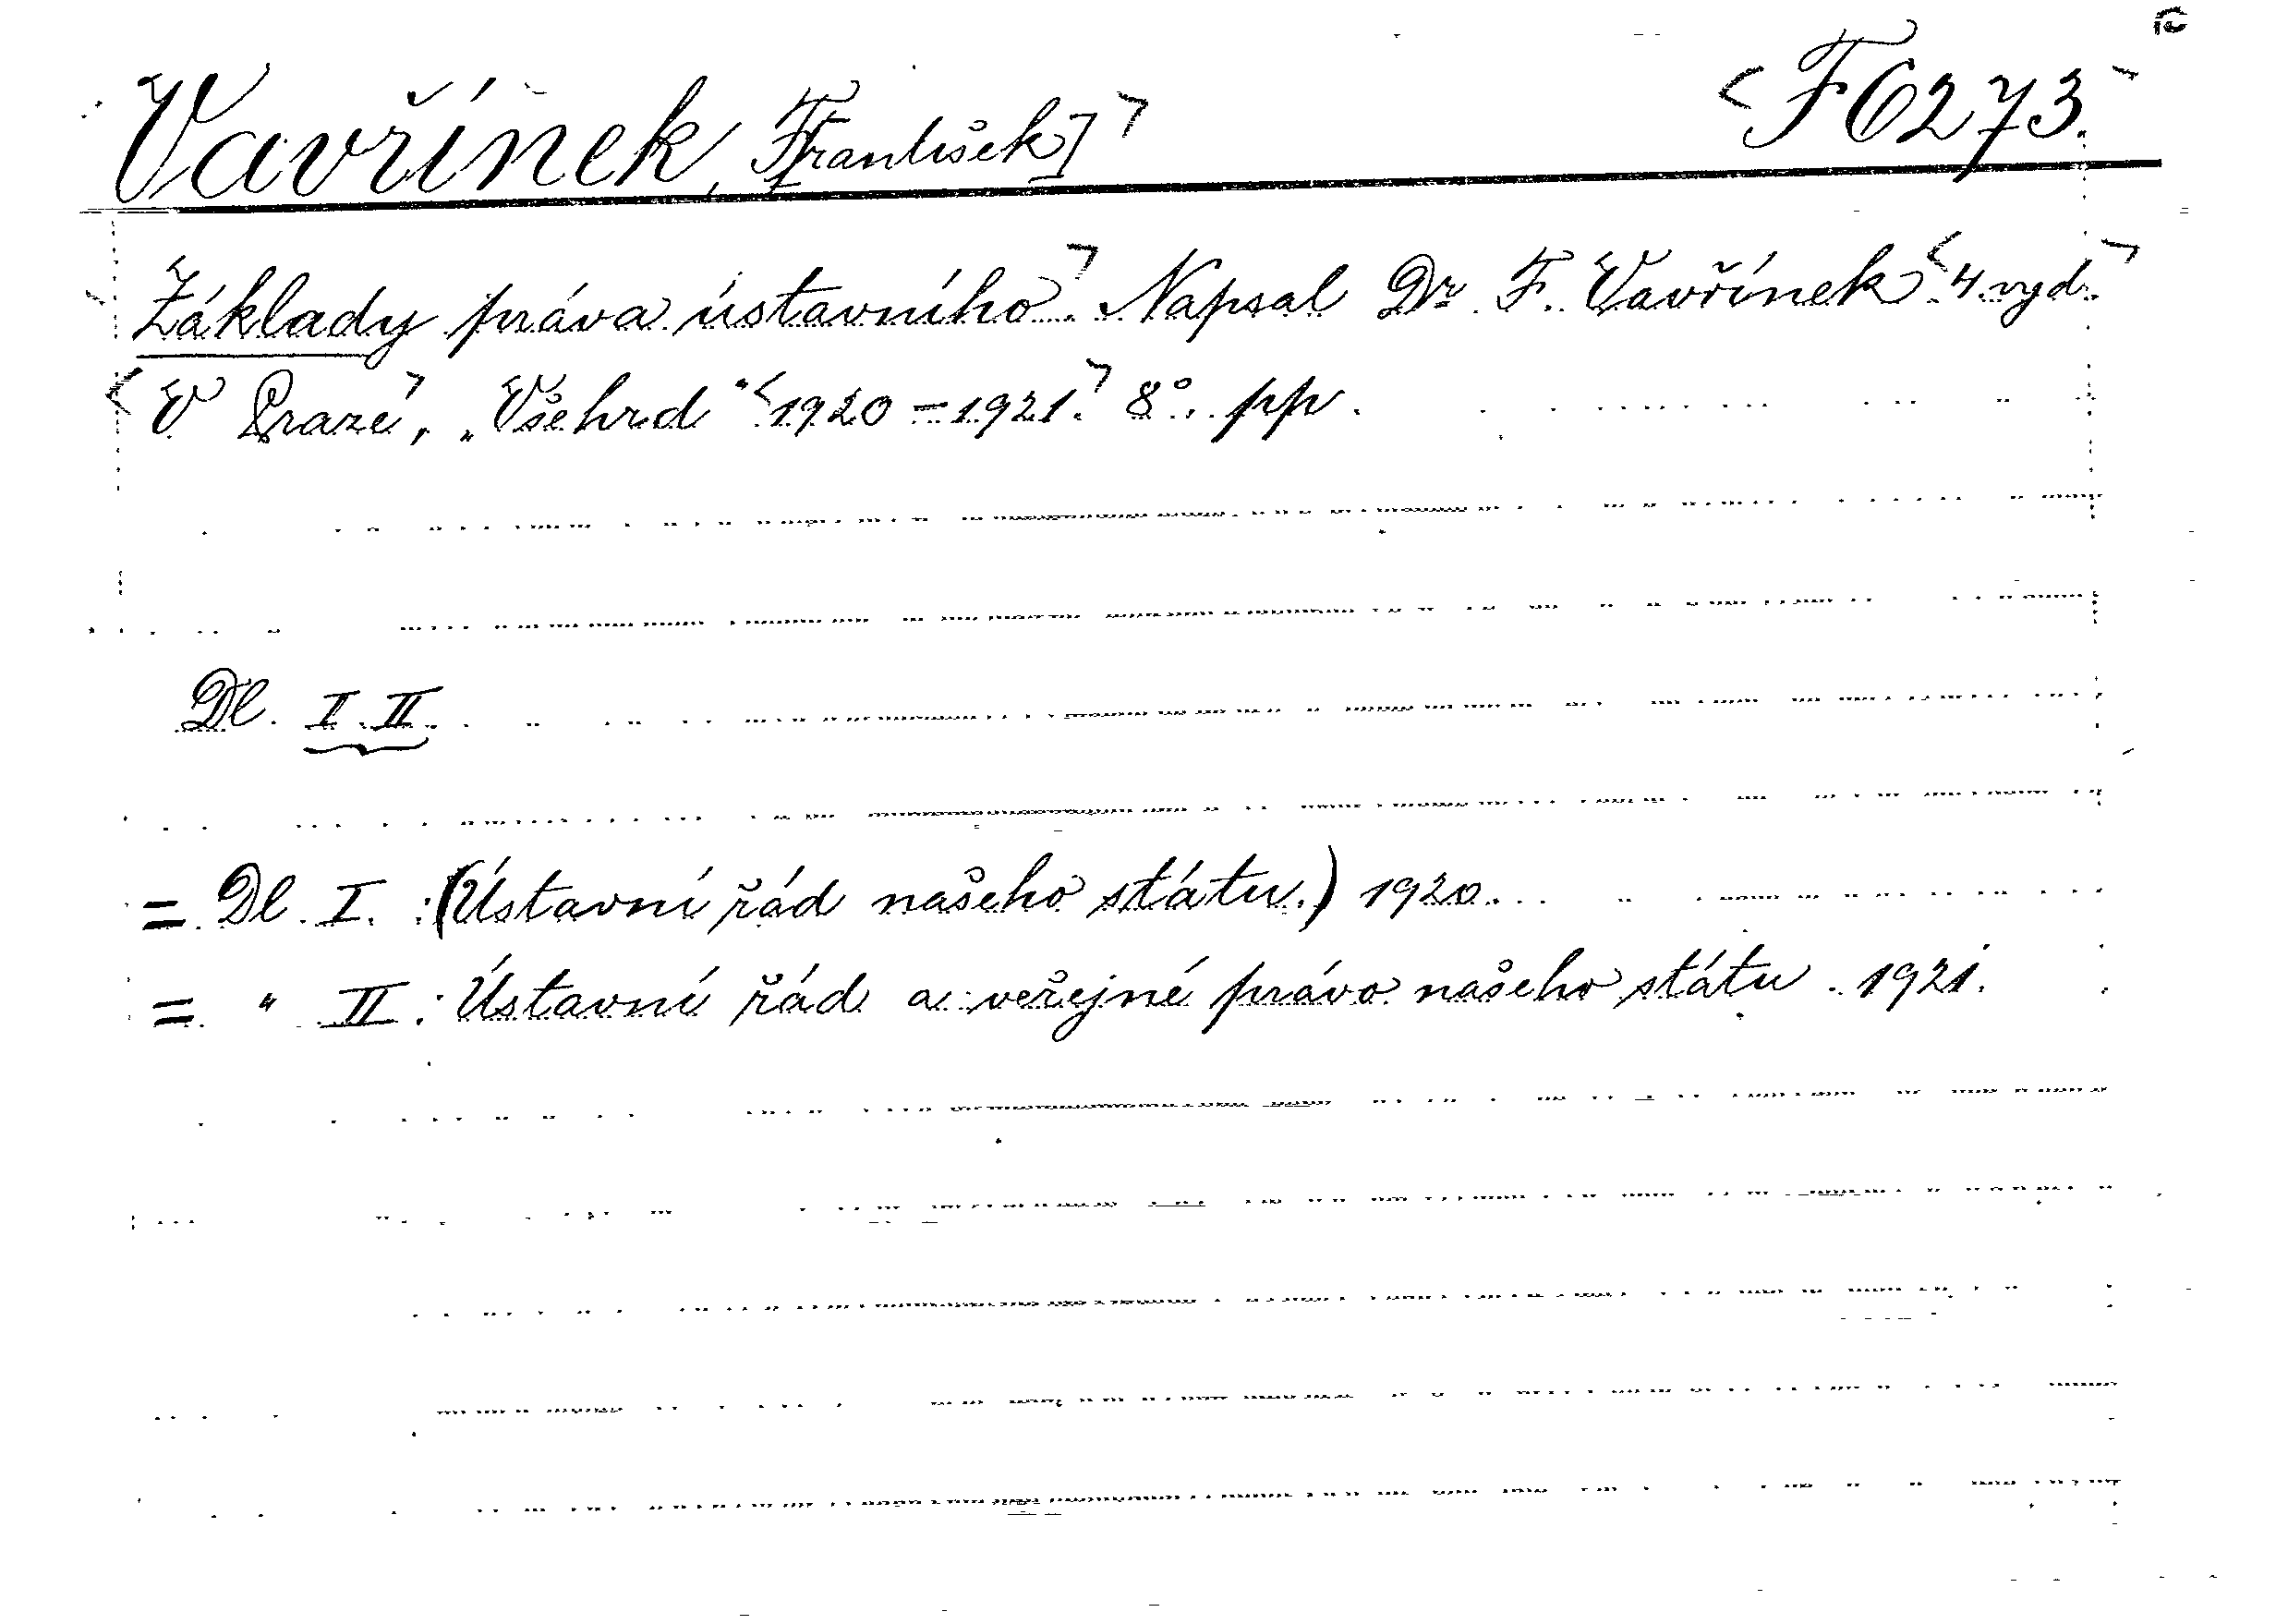 Vavřínek, F[rantišek] <F 6273.>
Základy práva ústavního. Napsal Dr. F. Vavřínek. 4. vyd.
V Praze, „Všehrd“ 1920–1921. 8°. pp.
Dl. I. II.
= Dl. I. : (Ústavní řád našeho státu.) 1920.
= " II : Ústavní řád a veřejné právo našeho státu. 1921.